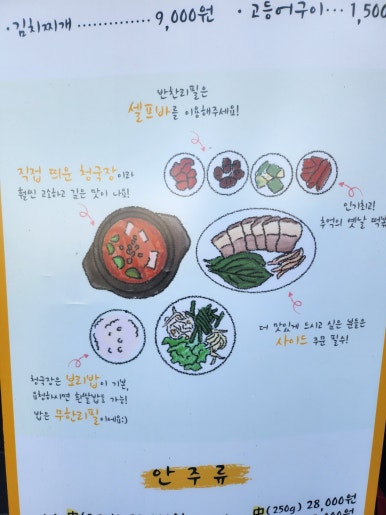 ·김치찌개 ............... 9,000원
·고등어구이 ... 1,500
반찬리필은
셀프바를 이용해주세요!
직접 띄운 청국장이라
훨씬 고소하고 깊은 맛이 나요!
인기최고!
추억의 옛날 떡볶
더 맛있게 드시고 싶은 분들은
사이드 주문 필수!
청국장은 보리밥이 기본,
요청하시면 흰쌀밥도 가능!
밥은 무한리필이에요:)
안주류
中(250g) 28,000원